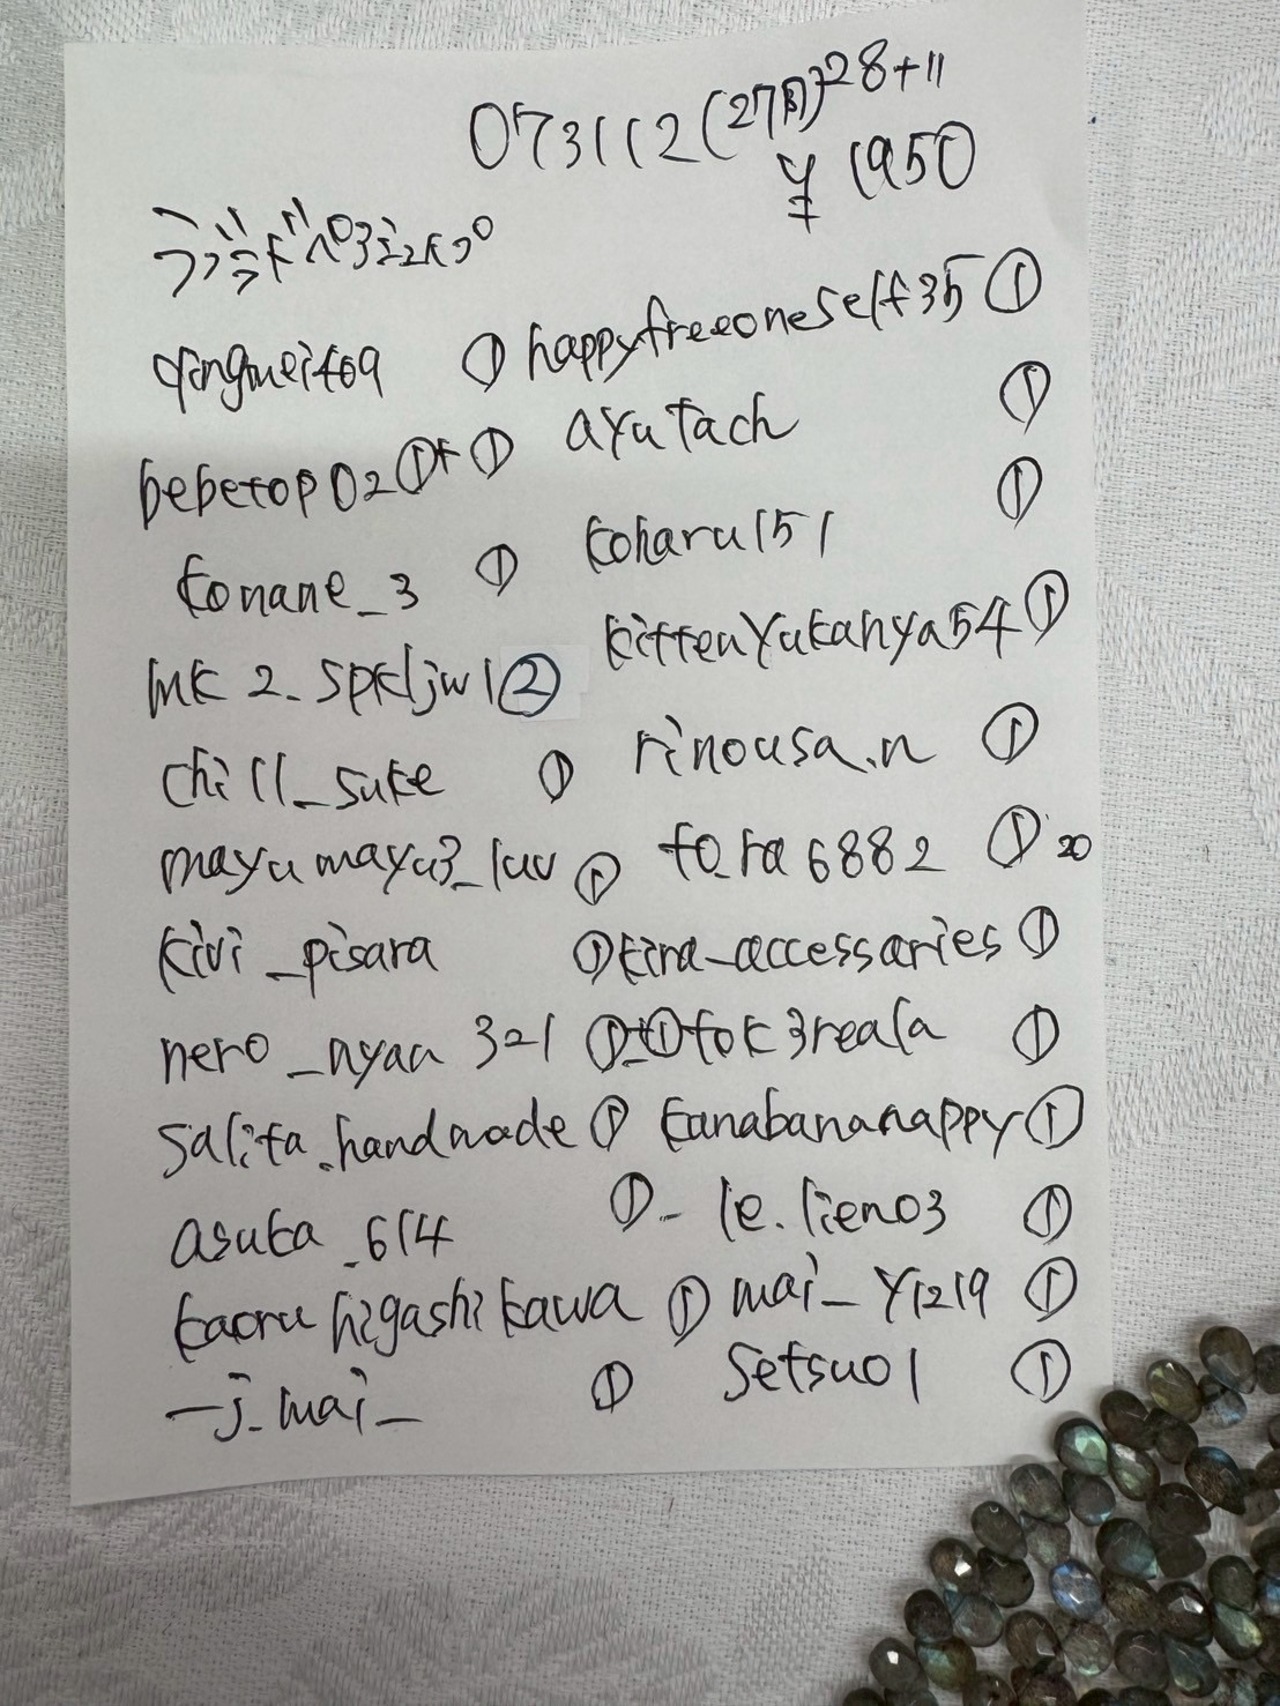 073112(27円)28+11
¥1950
qingmei409 ① happyfreeoneself35 ①
bebetop02 ①+① ayutach ①
konane_3 ① koharu151 ①
mk2_spkljw1 ② kittenyukanya54 ①
chill_suke ① rinousa.n ①
mayumayu3_luv ① to_ra6882 ① 20
kivi_pisara ① kira_accessaries ①
nero_nyan321 ①+① tok3reala ①
salita.handmade ① kanabananappy ①
asuka_614 ① _le.lien03 ①
kaoruhigashikawa ① mai_y1219 ①
_j_mai_ ① setsuo1 ①